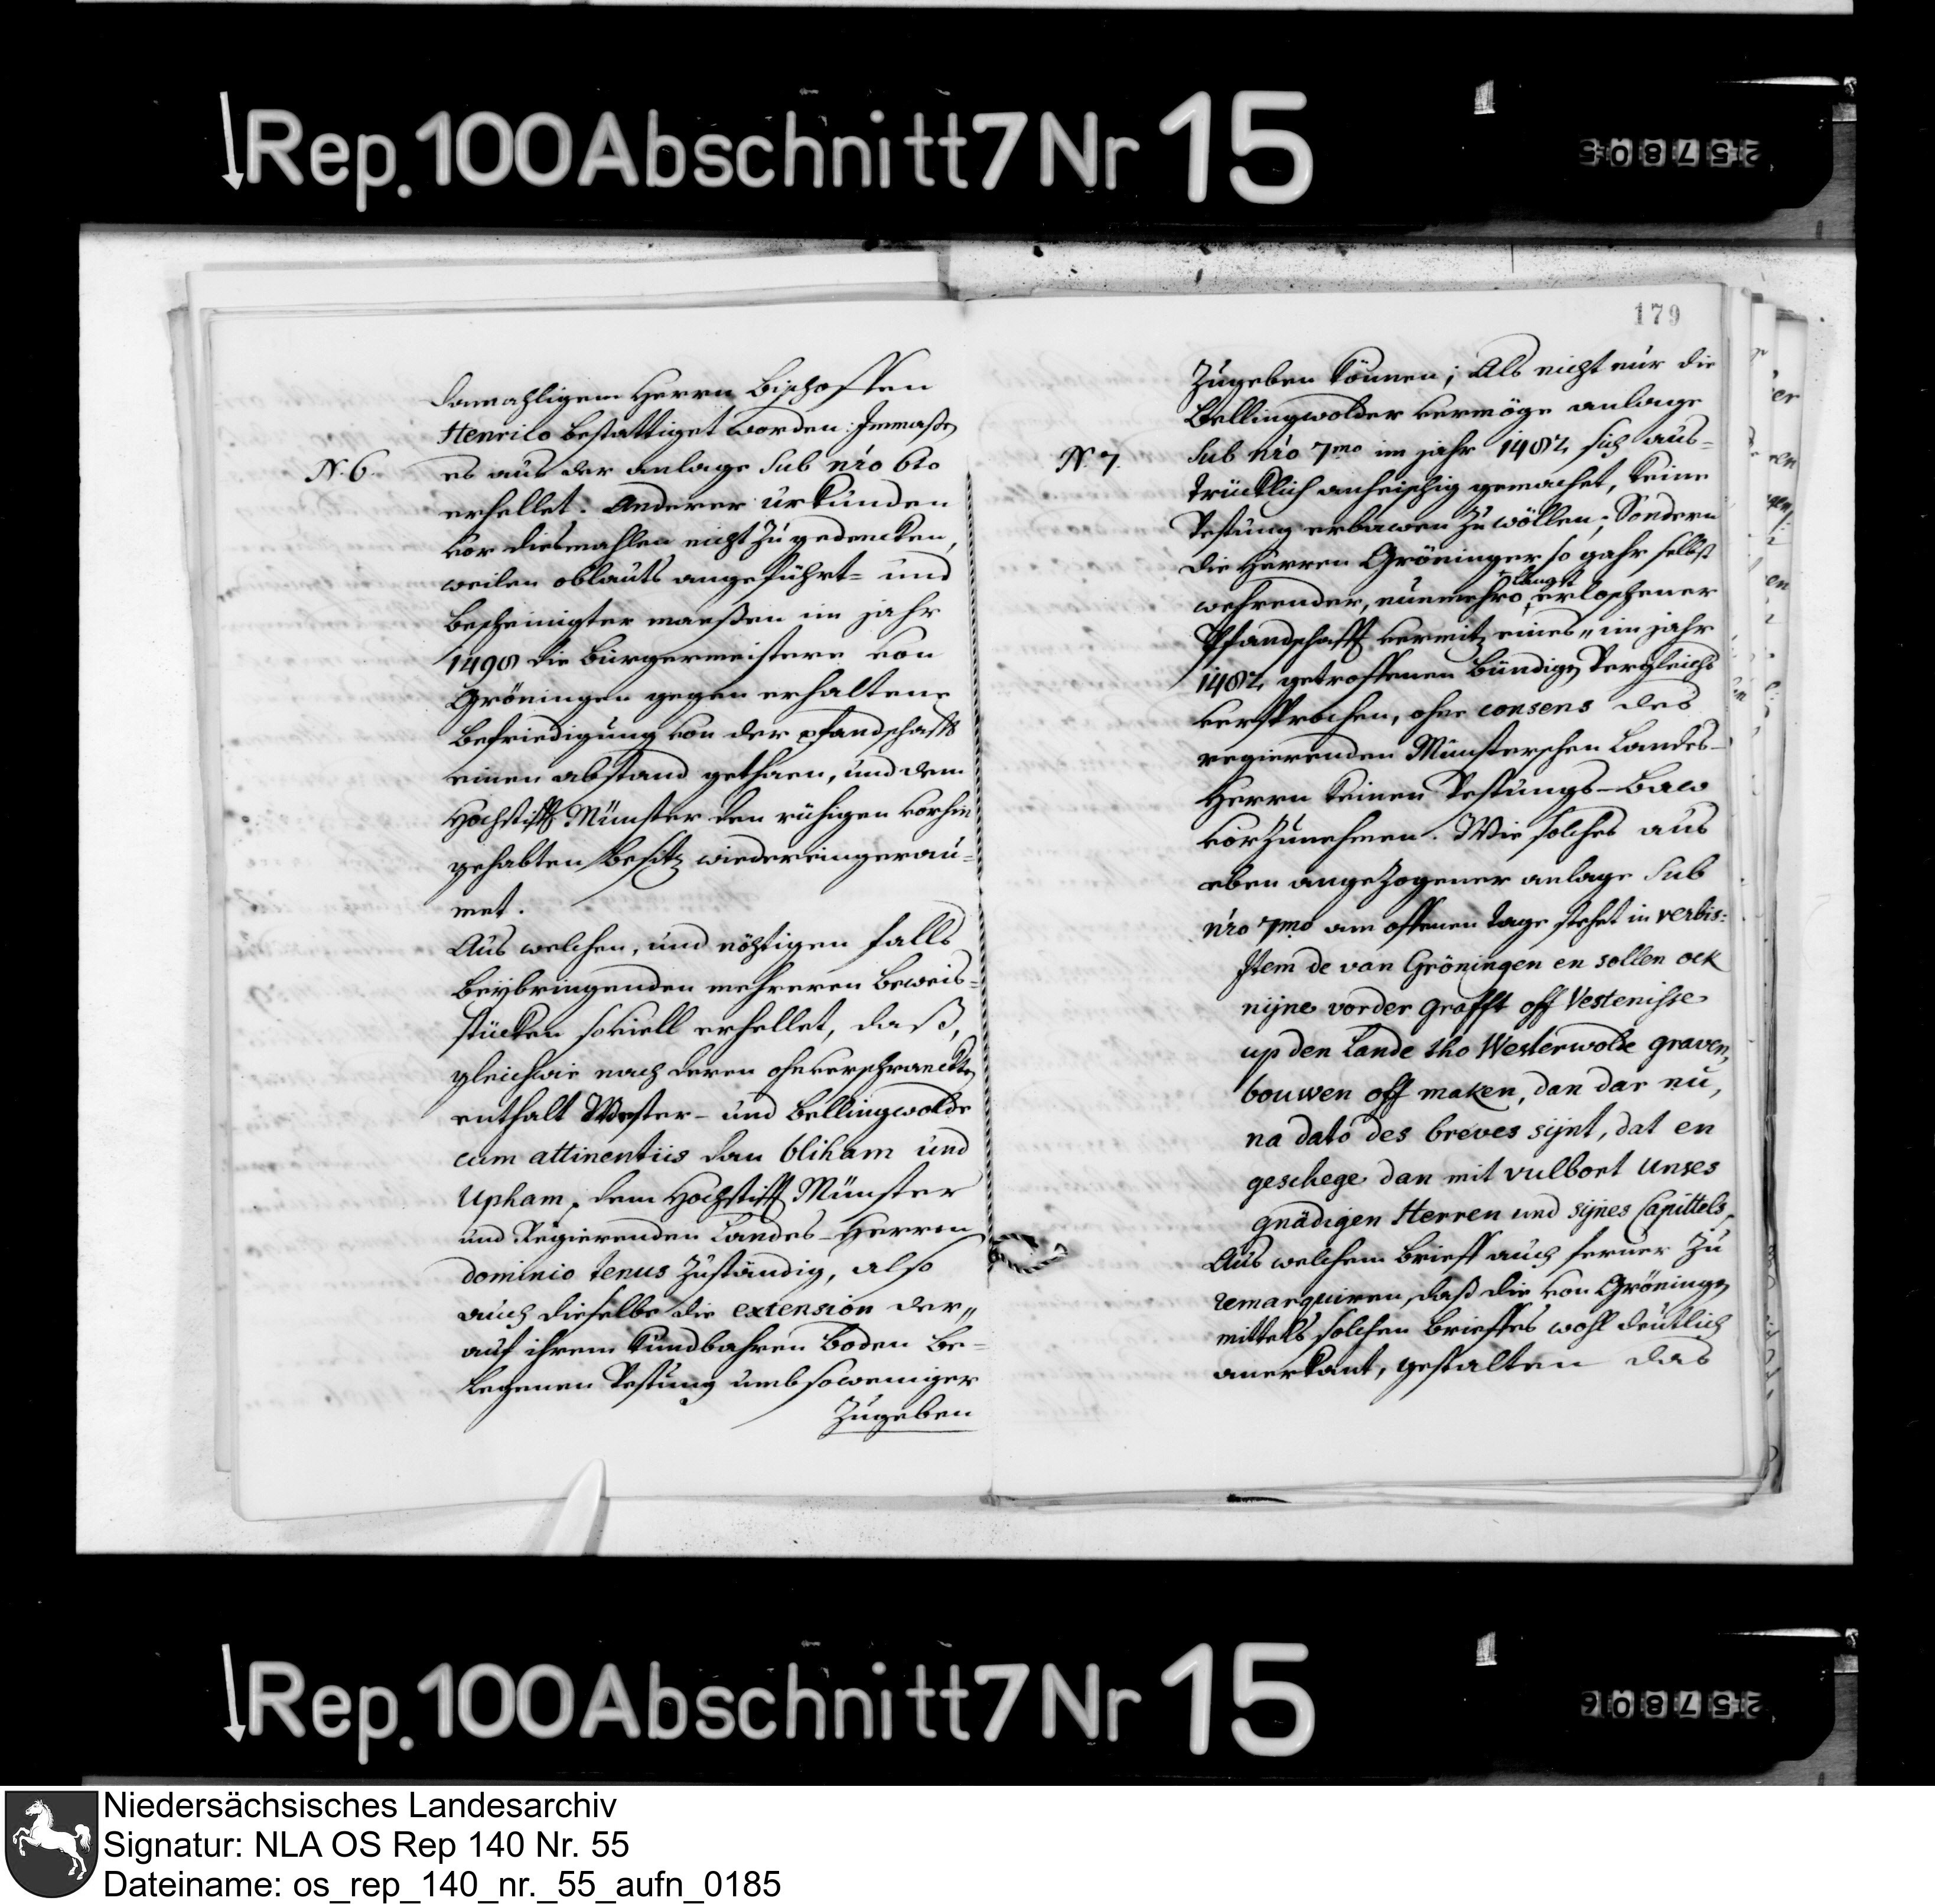 Rep. 100 Abschnitt 7 Nr 15
257805
179
damahligem Herrn Bischoffen
Henrico bestättiget worden: Jnmaßen
N. 6. es aus der anlage sub nro 6to
erhellet. Anderer urkunden
vor diesmahlen nicht zu gedencken,
weilen oblauts angeführt- und
bescheinigter maeßen im jahr
1498 die Bürgermeistere von
Gröningen gegen erhaltene
befriedigung von der pfandschafft
einen abstand gethaen, und dem
Hochstifft Münster den rühigen vorhin
gehabten besitz wiedereingerau-
met.
Aus welchen, und nöhtigen falls
beybringenden mehreren beweis-
stücken soviell erhellet, daß,
gleichwie nach deren ohnverschranckten
enthalt Wester- und Bellingwolde
cum attinentiis dan Bliham und
Upham, dem Hochstifft Münster
und Regierenden Landes-Herren
dominio tenus zuständig, also
auch dieselbe die extension der
auf ihrem kundbahren boden be-
legenen Vestung umbsoweniger
zugeben
zugeben können; Als nicht nur die
Bellingwolder vermöge anlage
N. 7. sub nro 7mo im jahr 1482 sich aus-
trücklich anheischig gemachet, keine
Vestung erbawen zu wöllen; Sondern
die Herren Gröninger so gahr selbst
wehrender, nunmehro längst erloschener
Pfandschafft vermitz eines im jahr
1482 getroffenen bündigen Vergleichs
versprochen, ohne consens des
regierenden Münsterschen Landes-
Herrn keinen Vestungs-Baw
vorzunehmen. Wie solches aus
eben angezogener anlage sub
nro 7mo am offenen tage stehet in verbis:
Jtem de van Gröningen en sollen ock
nijne vorder Grafft off Vestenisse
up den Lande tho Westerwolde graven,
bouwen off maken, dan dar nu,
na dato des breves sijnt, dat en
geschege dan mit vulbort unses
gnädigen Herren und sijnes Capittels,
Aus welchem brieff auch ferner zu
remarquiren, daß die von Gröningen
mittels solchen brieffes wohl deutlich
anerkant, gestalten das
Rep. 100 Abschnitt 7 Nr 15
257806
Niedersächsisches Landesarchiv
Signatur: NLA OS Rep 140 Nr. 55
Dateiname: os_rep_140_nr._55_aufn_0185